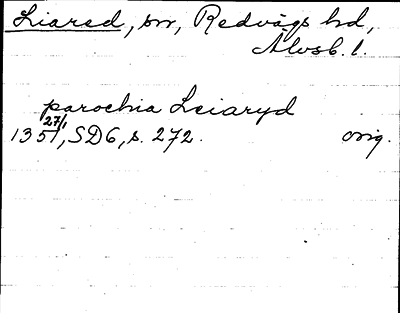 Liared, sn, Redvägs hd,
Älvsb. l.
parochia Leiaryd
27/1
1351, SD6, s. 272. orig.